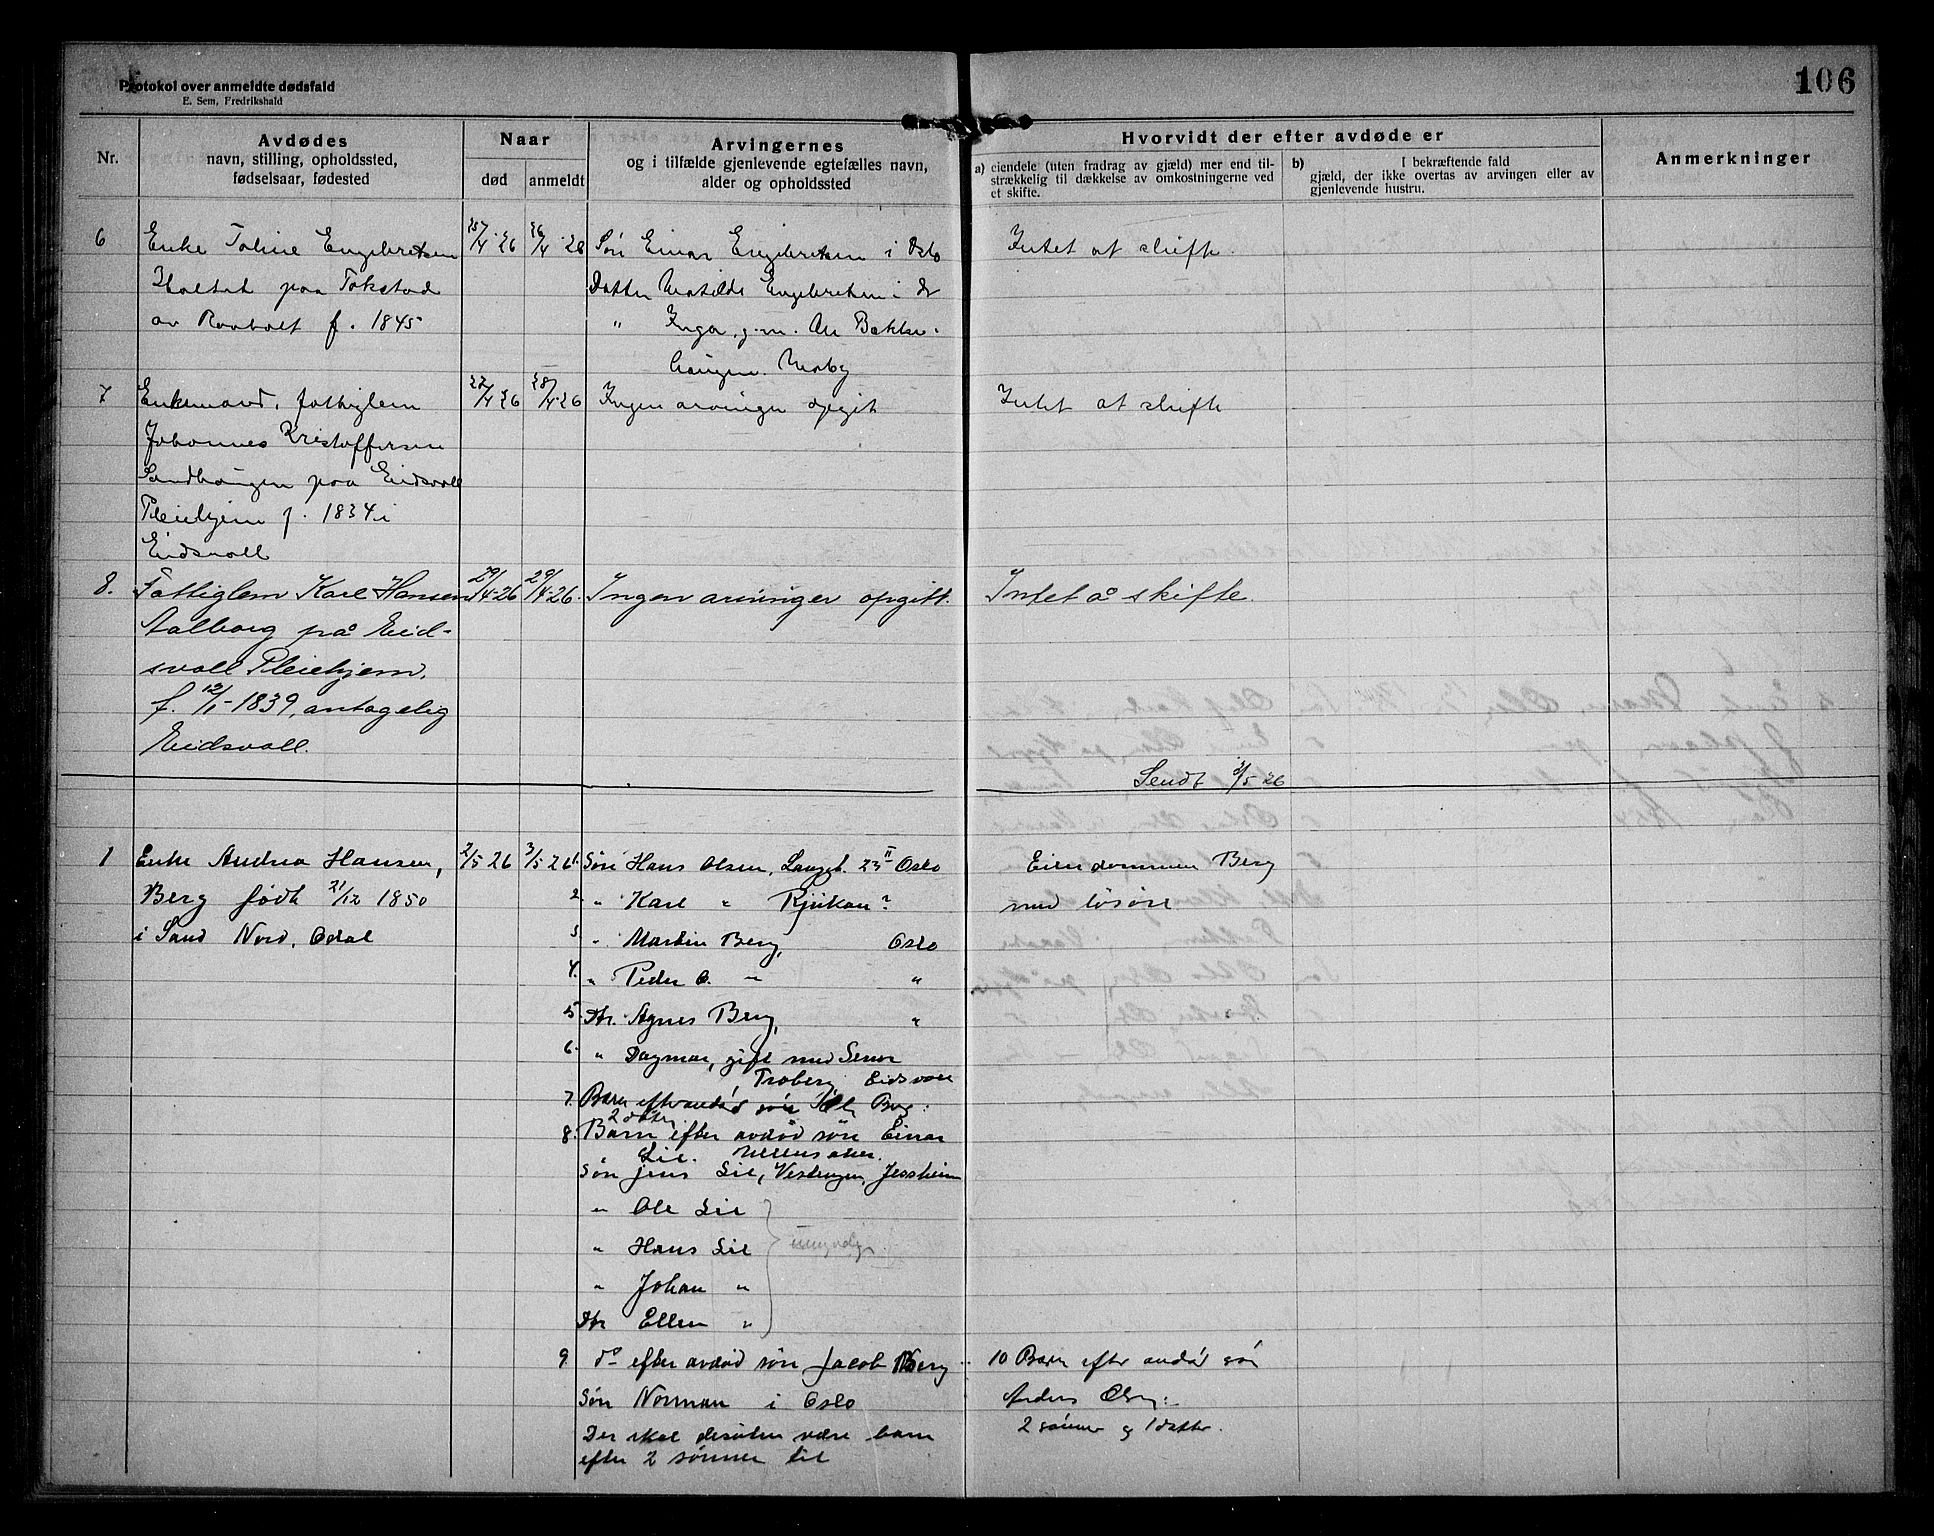 106
Protokol over anmeldte dødsfald
E. Sem, Fredrikshald
Nr.
Avdødes
navn, stilling, opholdssted,
fødselsaar, fødested
Naar
død
anmeldt
Arvingernes
og i tilfælde gjenlevende egtefælles navn,
alder og opholdssted
Hvorvidt der efter avdøde er
a) eiendele (uten fradrag av gjæld) mer end til-
strækkelig til dækkelse av omkostningerne ved
et skifte.
b) I bekræftende fald
gjæld, der ikke overtas av arvingen eller av
gjenlevende hustru.
Anmerkninger
6
Enke Toline Engebretsen
Holtet paa Tokstad
av Raaholt f. 1845
25/4-26
26/4-26
Søn Einar Engebretsen i Oslo
Datter Matilde Engebretsen i do
" Inga, g.m. Bakke-
haugen.
Intet at skifte.
7
Enkemand, fattiglem
Johannes Kristoffersen
Sandhaugen paa Eidsvoll
Pleiehjem f. 1834 i
Eidsvoll
27/4 26
28/4-26
Ingen arvinger opgit
Intet at skifte
8.
Fattiglem Karl Hansen
Aalborg på Eid-
svoll Pleiehjem.
f. 12/1-1839, antagelig
Eidsvoll.
29/4-26
29/4-26.
Ingen arvinger opgitt.
Intet å skifte.
Sendt 3/5 26
1
Enke Andrea Hansen,
Berg født 21/12 1850
i Sand Nord. Odal
2/5 26
3/5 26
1. Søn Hans Olsen, Langgt. 23 II Oslo
2. " Karl " Rjukan?
3. " Martin Berg, Oslo
4. " Peder O. " "
5. Dtr. Agnes Berg, "
6. " Dagmar, gift med
Troberg, Eidsvoll
7. Barn efter avdød søn Berg:
2 døtre.
8. Barn efter avdød søn Einar
Lie. Ullensaker.
Søn Jens Lie, Jessheim
" Ole Lie
" Hans Lie
umyndige
" Johan "
Dtr Ellen "
9. do efter avdød søn Jacob Berg
Søn Norman i Oslo
Der skal desuten være barn
efter 2 sønner til
Eiendommen Berg
med løsøre
10 Barn efter avdød søn
Anders Olsen:
2 sønner og 1 datter.